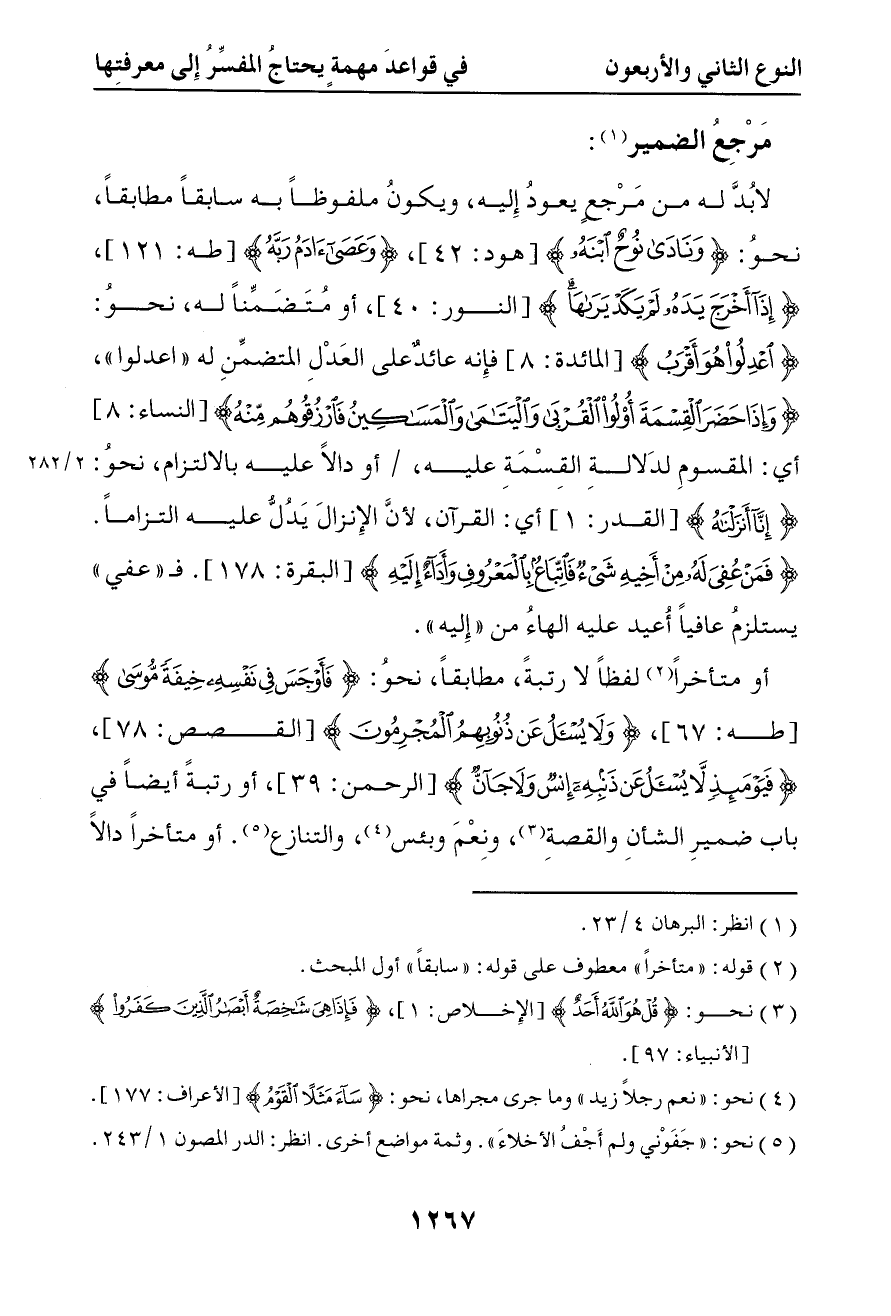 النوع الثاني والأربعون في قواعدَ مهمةٍ يحتاجُ المفسِّرُ إلى معرفتِها
مَرْجِعُ الضمير(١):
لابُدَّ له من مَرْجعٍ يعودُ إليه، ويكونُ ملفوظاً به سابقاً مطابقاً،
نحوُ: ﴿ وَنَادَىٰ نُوحٌ ٱبْنَهُۥ ﴾ [هود: ٤٢]، ﴿ وَعَصَىٰٓ ءَادَمُ رَبَّهُۥ ﴾ [طه: ١٢١]،
﴿ إِذَآ أَخْرَجَ يَدَهُۥ لَمْ يَكَدْ يَرَىٰهَا ۗ ﴾ [النور: ٤٠]، أو مُتَضَمِّناً له، نحوُ:
﴿ ٱعْدِلُوا۟ هُوَ أَقْرَبُ ﴾ [المائدة: ٨] فإنه عائدٌ على العَدْلِ المتضمِّنِ له «اعدلوا»،
﴿ وَإِذَا حَضَرَ ٱلْقِسْمَةَ أُو۟لُوا۟ ٱلْقُرْبَىٰ وَٱلْيَتَـٰمَىٰ وَٱلْمَسَـٰكِينُ فَٱرْزُقُوهُم مِّنْهُ ﴾ [النساء: ٨]
أي: المقسوم لدَلالةِ القِسْمَةِ عليه، / أو دالاً عليه بالالتزام، نحوُ: ٢٨٢/٢
﴿ إِنَّآ أَنزَلْنَـٰهُ ﴾ [القدر: ١] أي: القرآن، لأنَّ الإنزالَ يَدُلُّ عليه التزاماً.
﴿ فَمَنْ عُفِىَ لَهُۥ مِنْ أَخِيهِ شَىْءٌ فَٱتِّبَاعٌۢ بِٱلْمَعْرُوفِ وَأَدَآءٌ إِلَيْهِ ﴾ [البقرة: ١٧٨]. فـ «عفي»
يستلزمُ عافياً أُعيد عليه الهاءُ من «إليه».
أو متأخراً(٢) لفظاً لا رتبةً، مطابقاً، نحوُ: ﴿ فَأَوْجَسَ فِى نَفْسِهِۦ خِيفَةً مُّوسَىٰ ﴾
[طه: ٦٧]، ﴿ وَلَا يُسْـَٔلُ عَن ذُنُوبِهِمُ ٱلْمُجْرِمُونَ ﴾ [القصص: ٧٨]،
﴿ فَيَوْمَئِذٍ لَّا يُسْـَٔلُ عَن ذَنۢبِهِۦٓ إِنسٌ وَلَا جَآنٌّ ﴾ [الرحمن: ٣٩]، أو رتبةً أيضاً في
باب ضميرِ الشأنِ والقصةِ(٣)، ونِعْمَ وبئس(٤)، والتنازع(٥). أو متأخراً دالاً
(١) انظر: البرهان ٤ /٢٣.
(٢) قوله: «متأخراً» معطوف على قوله: «سابقاً» أول المبحث.
(٣) نحو: ﴿ قُلْ هُوَ ٱللَّهُ أَحَدٌ ﴾ [الإخلاص: ١]، ﴿ فَإِذَا هِىَ شَـٰخِصَةٌ أَبْصَـٰرُ ٱلَّذِينَ كَفَرُوا۟ ﴾
[الأنبياء: ٩٧].
(٤) نحو: «نعم رجلاً زيد» وما جرى مجراها، نحو: ﴿ سَآءَ مَثَلًا ٱلْقَوْمُ ﴾ [الأعراف: ١٧٧].
(٥) نحو: «جَفَوْني ولم أَجْفُ الأخلاءَ». وثمة مواضع أخرى. انظر: الدر المصون ١ /٢٤٣.
١٢٦٧